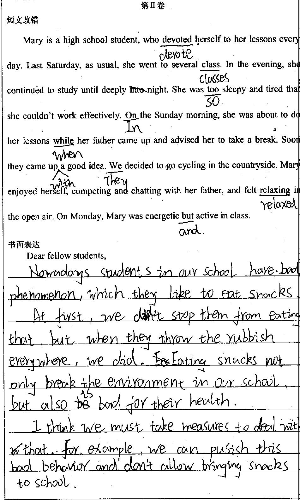 第Ⅱ卷
短文改错
Mary is a high school student, who devoted herself to her lessons every
devote
day. Last Saturday, as usual, she went to several class. In the evening, she
classes
continued to study until deeply into night. She was too sleepy and tired that
so
she couldn't work effectively. On the Sunday morning, she was about to do
In
her lessons while her father came up and advised her to take a break. Soon
when
they came up a good idea. We decided to go cycling in the countryside. Mary
with They
enjoyed herself, competing and chatting with her father, and felt relaxing in
relaxed
the open air. On Monday, Mary was energetic but active in class.
and.
书面表达
Dear fellow students,
Nowadays students in our school have bad
phenomenon, which they like to eat snacks.
At first, we didn't stop them from eating
that, but when they throw the rubbish
everywhere, we did. Eating snacks not
only break the environment in our school,
but also is bad for their health.
I think we must take measures to deal with
that. For example, we can punish this
bad behavior and don't allow bringing snacks
to school.